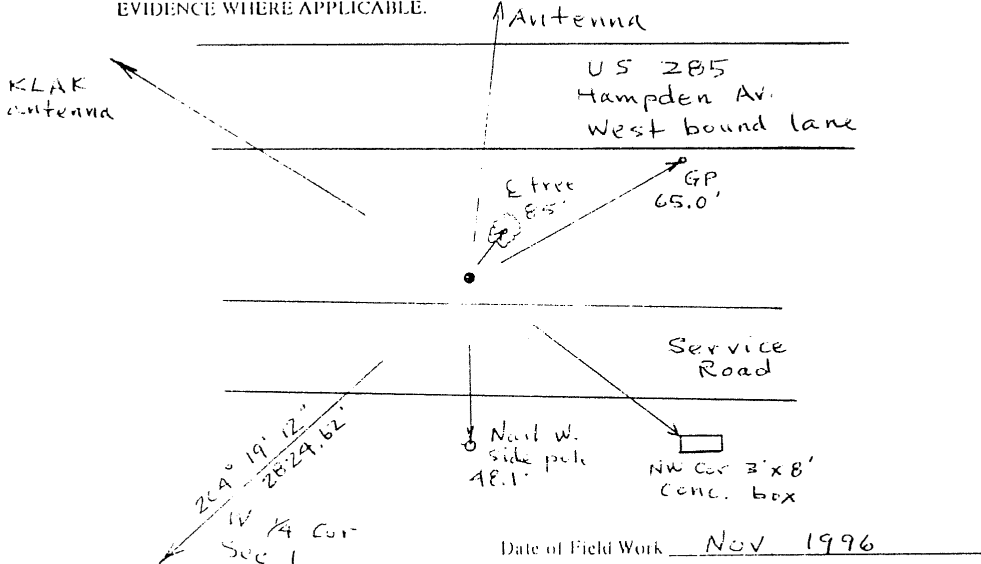 EVIDENCE WHERE APPLICABLE.
Antenna
KLAK
antenna
US 285
Hampden Av.
West bound lane
GP
65.0'
℄ tree
8.5'
Service
Road
19' 12"
2824.62'
W 1/4 Cor
Sec 1
Nail W.
side pole
48.1'
NW Cor 3'x8'
conc. box
Date of Field Work Nov 1996